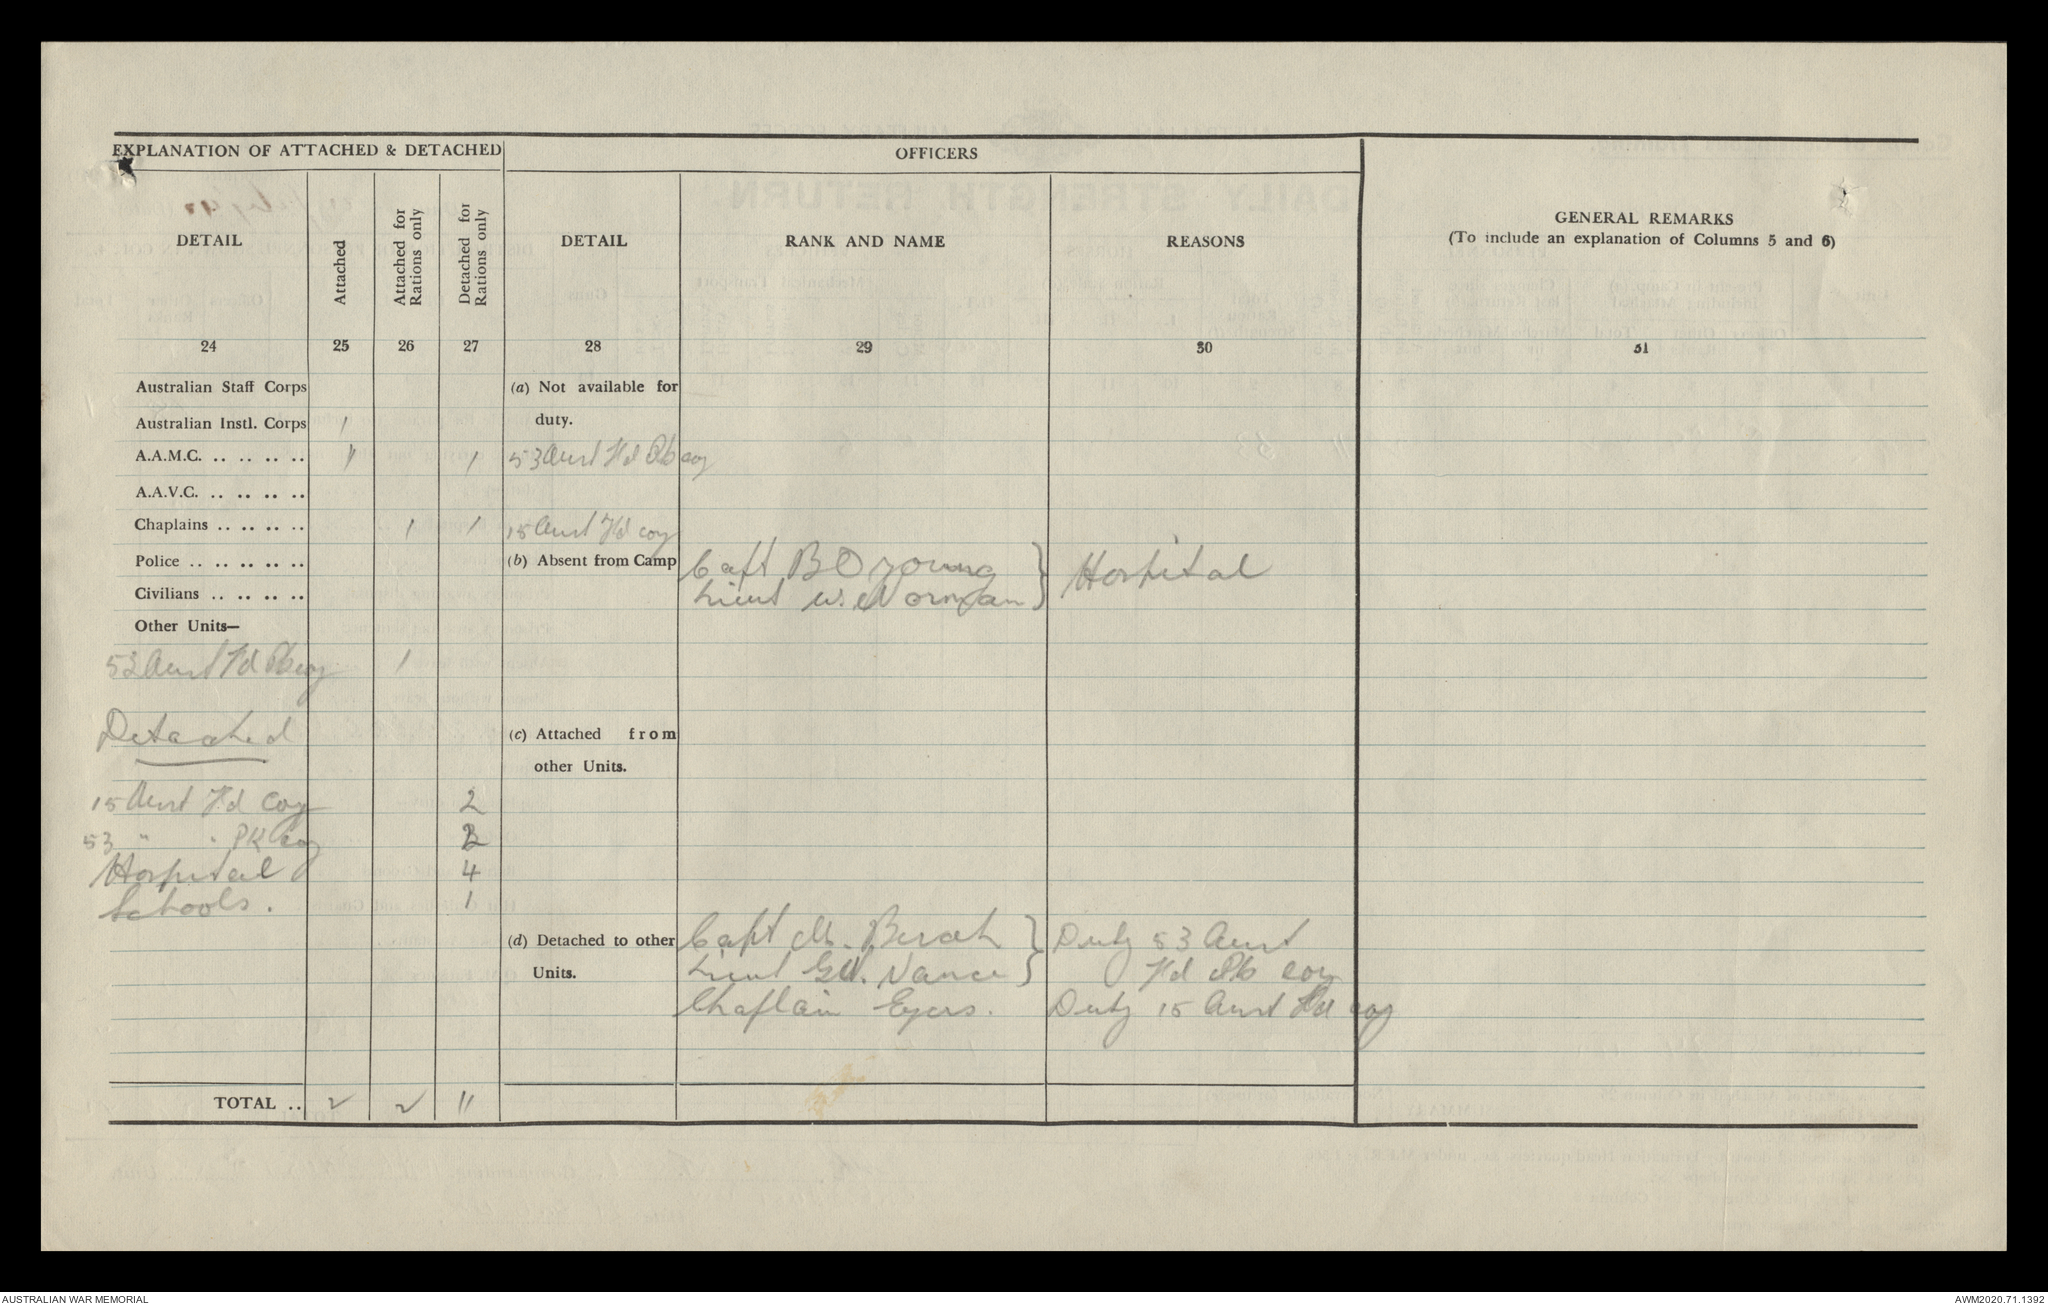 EXPLANATION OF ATTACHED & DETACHED
OFFICERS
GENERAL REMARKS
(To include an explanation of Columns 5 and 6)
DETAIL
Attached
Attached for Rations only
Detached for Rations only
DETAIL
RANK AND NAME
REASONS
24 25 26 27 28 29 30 31
Australian Staff Corps
(a) Not available for
duty.
Australian Instl. Corps 1
A.A.M.C. .. .. .. .. 1 1 53 Aust Fd Pk coy
A.A.V.C. .. .. .. ..
Chaplains .. .. .. .. 1 1 15 Aust Fd coy
Police .. .. .. .. .. (b) Absent from Camp Capt B O Young } Hospital
Civilians .. .. .. .. Lieut W. Norman }
Other Units—
53 Aust Fd Pk coy 1
Detached
(c) Attached from
other Units.
15 Aust Fd Coy 2
53 " " PK Coy 2
Hospital 4
Schools. 1
(d) Detached to other Capt M. Birch } Duty 53 Aust
Units. Lieut G.W. Vance } Fd Pk coy
Chaplain Eyers. Duty 15 Aust Fd coy
TOTAL .. 2 2 11
AUSTRALIAN WAR MEMORIAL
AWM2020.71.1392